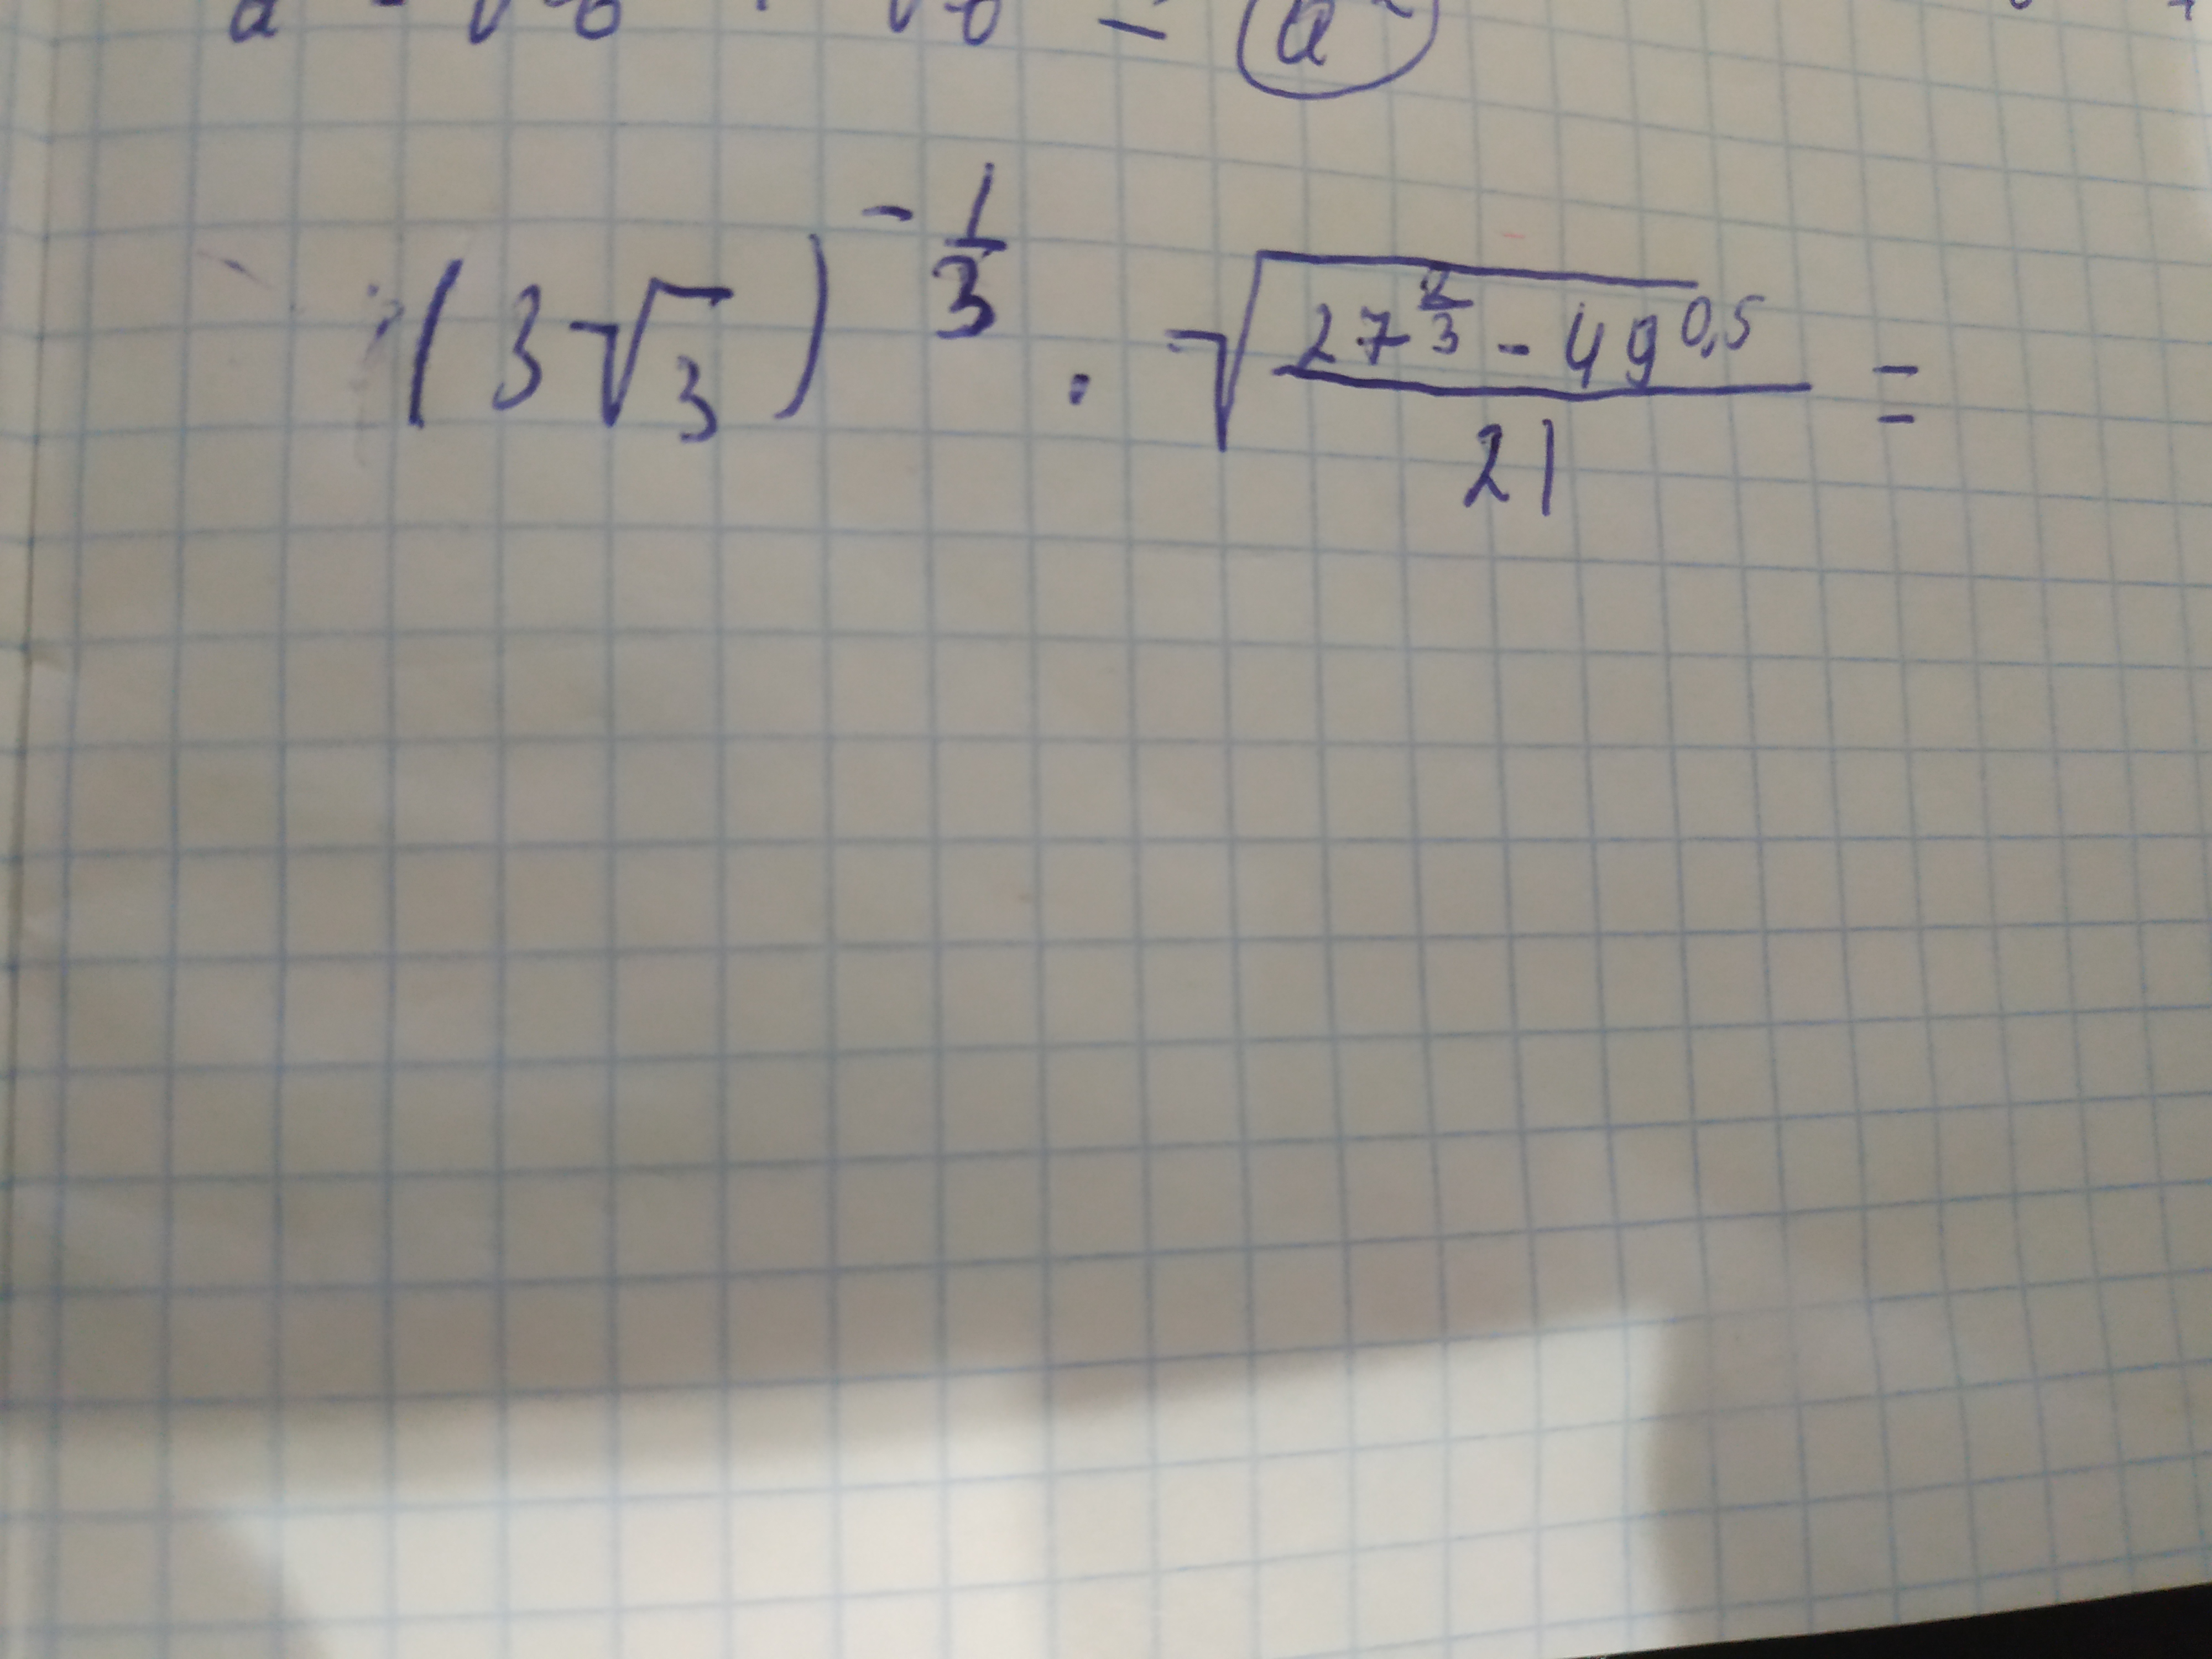 (3√3)^(-1/3) · √((27^(2/3) - 49^(0,5))/21) =